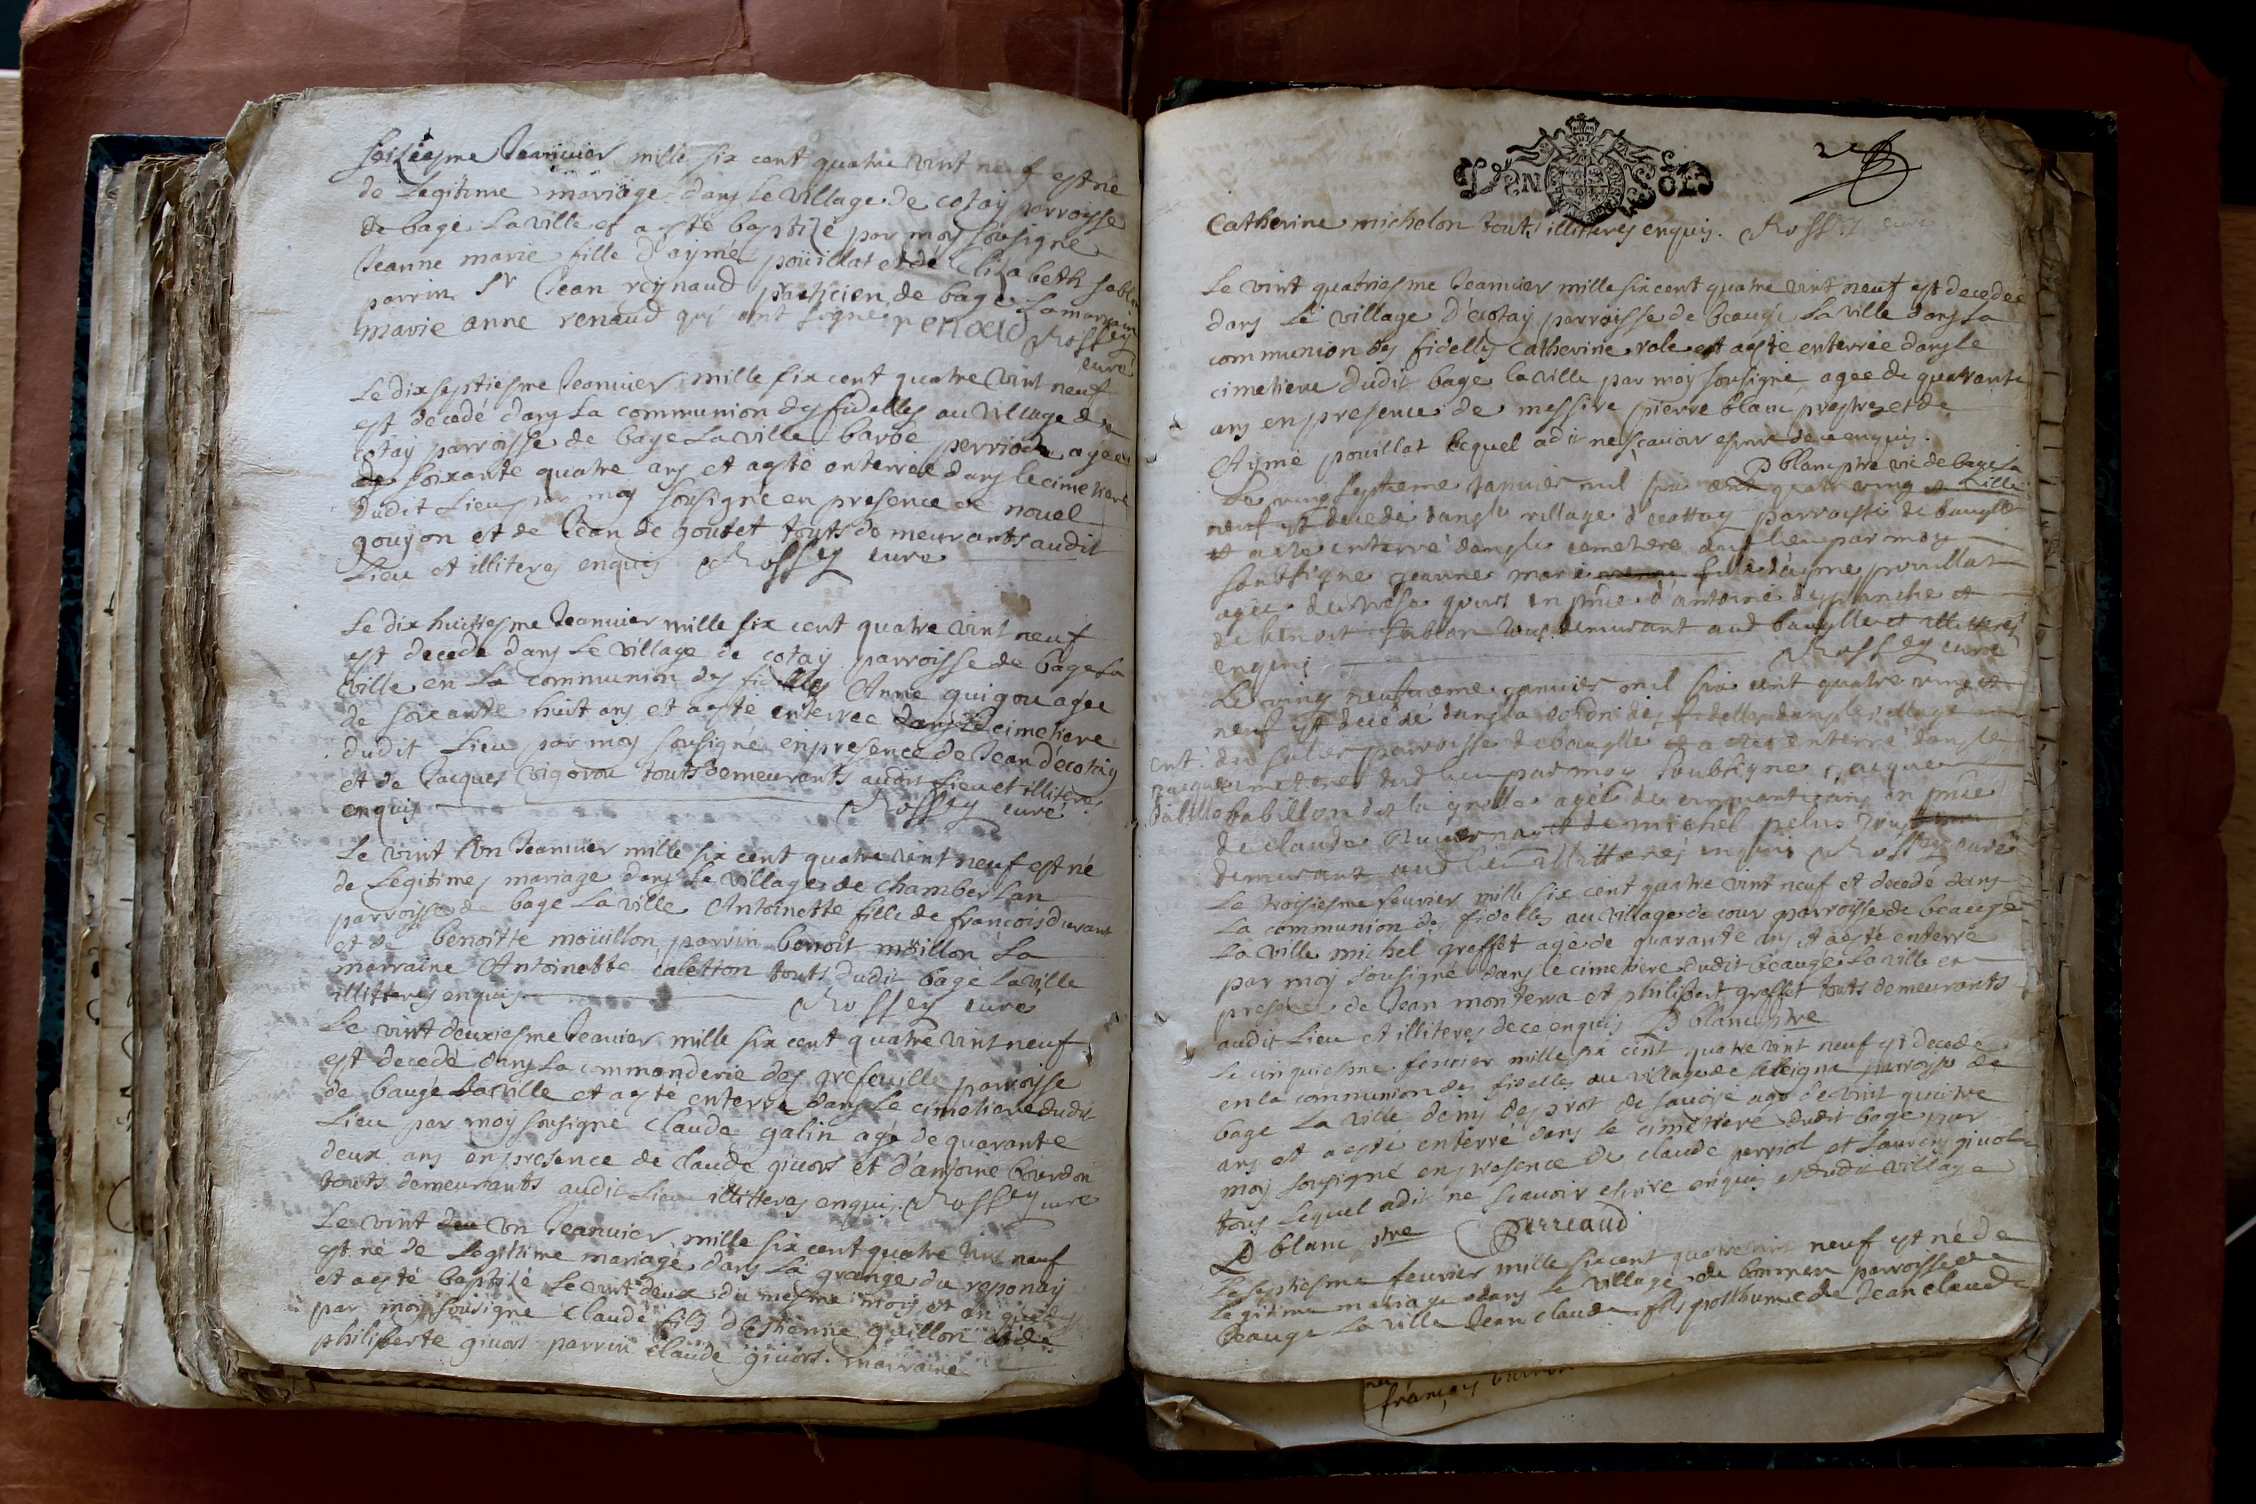 seiziesme Jeanuier mille six cent quatre vint neuf est né
de Legitime mariage dans Le village de cotay parroysse
de bagé La ville et a esté baptizé par moy sousigné
Jeanne marie fille d'aymé poüillat et de Elizabeth sablon
parrin Sr Jean reynaud praticien de bage La marraine
marie anne renaud qui ont signé renaud Rossey
curé
Le dix septiesme Jeanuier mille six cent quatre vint neuf
est decedé dans La communion des fidelles au village de
cotay parroisse de bage La ville barbe perriode agee
de soixante quatre ans et a esté enterrée dans le cimetiere
dudit Lieu par moy sousigné en presence de nouel
goujon et de Jean de goutet touts demeurants audit
Lieu et illiteres enquis Rossey curé
Le dix huictiesme Jeanuier mille six cent quatre vint neuf
est decedé dans Le village de cotay parroisse de bage La
ville en La communion des fidelles Anne guigou agée
de soixante huit ans et a esté enterree dans Le cimetiere
dudit Lieu par moy sousigné en presence de Jean décotay
et de Jacques vigorou touts demeurants audit Lieu et illiteres
enquis Rossey curé
Le vint Vn Jeanuier mille six cent quatre vint neuf est né
de Legitimes mariage dans Le village de chamberlan
parroisse de bage La ville Antoinette fille de francois durant
et de benoitte moüillon parrin benoit moillon La
marraine Antoinette caletton touts dudit bage La ville
illitteres enquis Rossey curé
Le vint deuxiesme Jeanuier mille six cent quatre vint neuf
est decedé dans La commanderie des grefeuille parroysse
de baugé La ville et a esté enterré dans Le cimetiere dudit
Lieu par moy sousigné Claude galin agé de quarante
deux ans en presence de claude giuors et d'antoine bourdon
touts demeurants audit Lieu illitteres enquis Rossey curé
Le vint Vn Jeanuier mille six cent quatre vint neuf
est né de Legitime mariage dans La grange du reponay
et a esté baptizé Le vint deux du mesme mois et an
par moy sousigné Claude fils d'Estienne guillon et de
philiberte giuors parrin claude giuors marraine
VN SOL
Catherine michelon touts illitteres enquis. Rossey curé
Le vint quatriesme Jeanuier mille six cent quatre vint neuf est decedee
dans Le village d'écotay parroisse de beaugé La ville dans La
communion des fidelles Catherine role et a esté enterrée dans le
cimetiere dudit bage la ville par moy sousigné agee de quarante
ans en presence de messire pierre blanc prestre et de
Aymé pouillat lequel a dit ne scauoir escrire de ce enquis.
P blanc ptre vic de bage La
ville
Le ving septieme januier mil six cent quatre ving et
neuf est decedé dans le village d'ecottay parroisse de bauglle
et a esté enterré dans le cemetiere audt lieu par moy
soubsigné jeanne marie fille d'ayme pouillat
agée de trese jours en pnce d'antoine desplanche et
de benoit sablon tous demurant aud bauglle et illitteres
enquis Rossey curé
Le ving neufuieme januier mil six cent quatre ving et
neuf est decedé dans la co[m]on des fidelles dans le village
parroisse de bauglle et a esté enterré dans le
cemetiere dud lieu par moy soubsigné jacque
babillon agée de cinquante ans en pnce
de claude et de michel pelus tous
demurant aud lieu illitteres enquis Rossey curé
Le troisiesme feurier mille six cent quatre vint neuf et decedé dans
La communion des fidelles au village de cour parroisse de beaugé
La ville michel greffet agé de quarante ans et a esté enterré
par moy sousigné dans le cimetiere dudit beauge La ville en
presence de Jean monterra et philibert greffet touts demeurants
audit Lieu et illiteres de ce enquis P blanc ptre
Le cinquiesme feurier mille six cent quatre vint neuf est decedé
en la communion des fidelles au village de parroisse de
bage La ville denis desprot de sauoye agé de vint quatre
ans et a esté enterré dans le cimetiere dudit bage par
moy sousigné en presence de claude perriol et Laurens giuolz
tous lequel a dit ne scauoir escrire enquis et dudit village
P blanc ptre Perreaud
Le septiesme feurier mille six cent quatre vint neuf est né de
Legitime mariage dans le village de parroisse de
beauge La ville Jean claude fils posthume de Jean claude
françoys